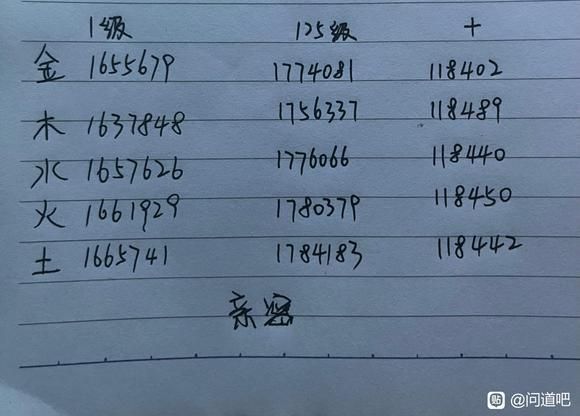 1级 125级 +
金 1655679 1774081 118402
木 1637848 1756337 118489
水 1657626 1776066 118440
火 1661929 1780379 118450
土 1665741 1784183 118442
亲密
贴 @问道吧